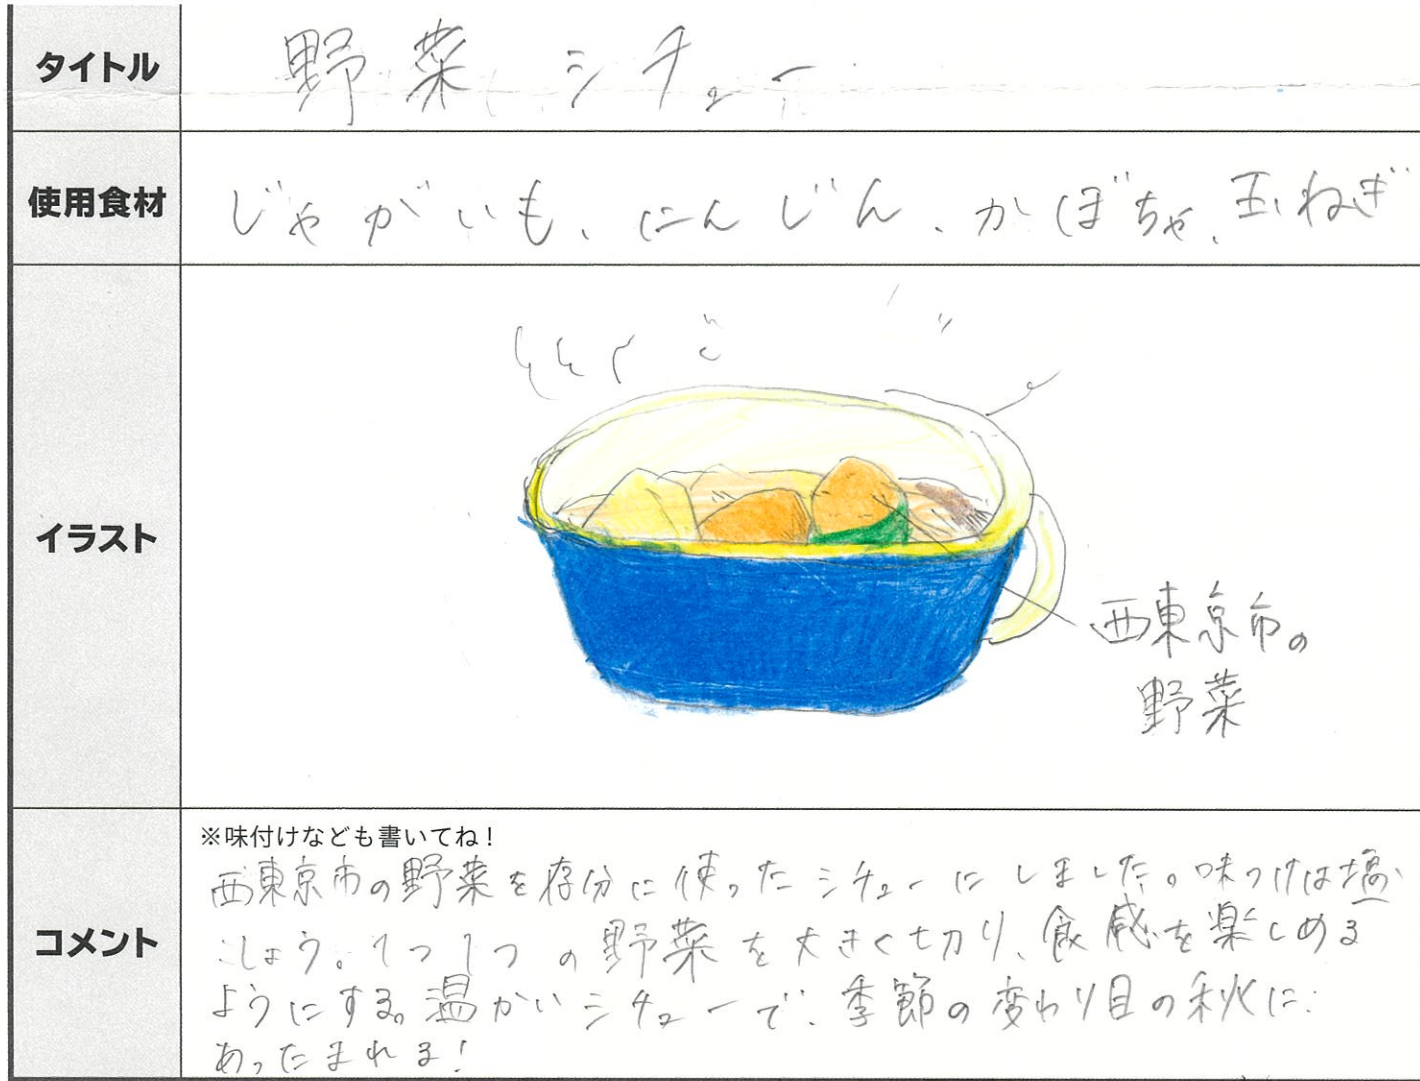 タイトル
野菜シチュー
使用食材
じゃがいも、にんじん、かぼちゃ、玉ねぎ
イラスト
西東京市の
野菜
コメント
※味付けなども書いてね！
西東京市の野菜を存分に使ったシチューにしました。味つけは塩
こしょう。1つ1つの野菜を大きく切り、食感を楽しめる
ようにする。温かいシチューで、季節の変わり目の秋に
あったまれる！